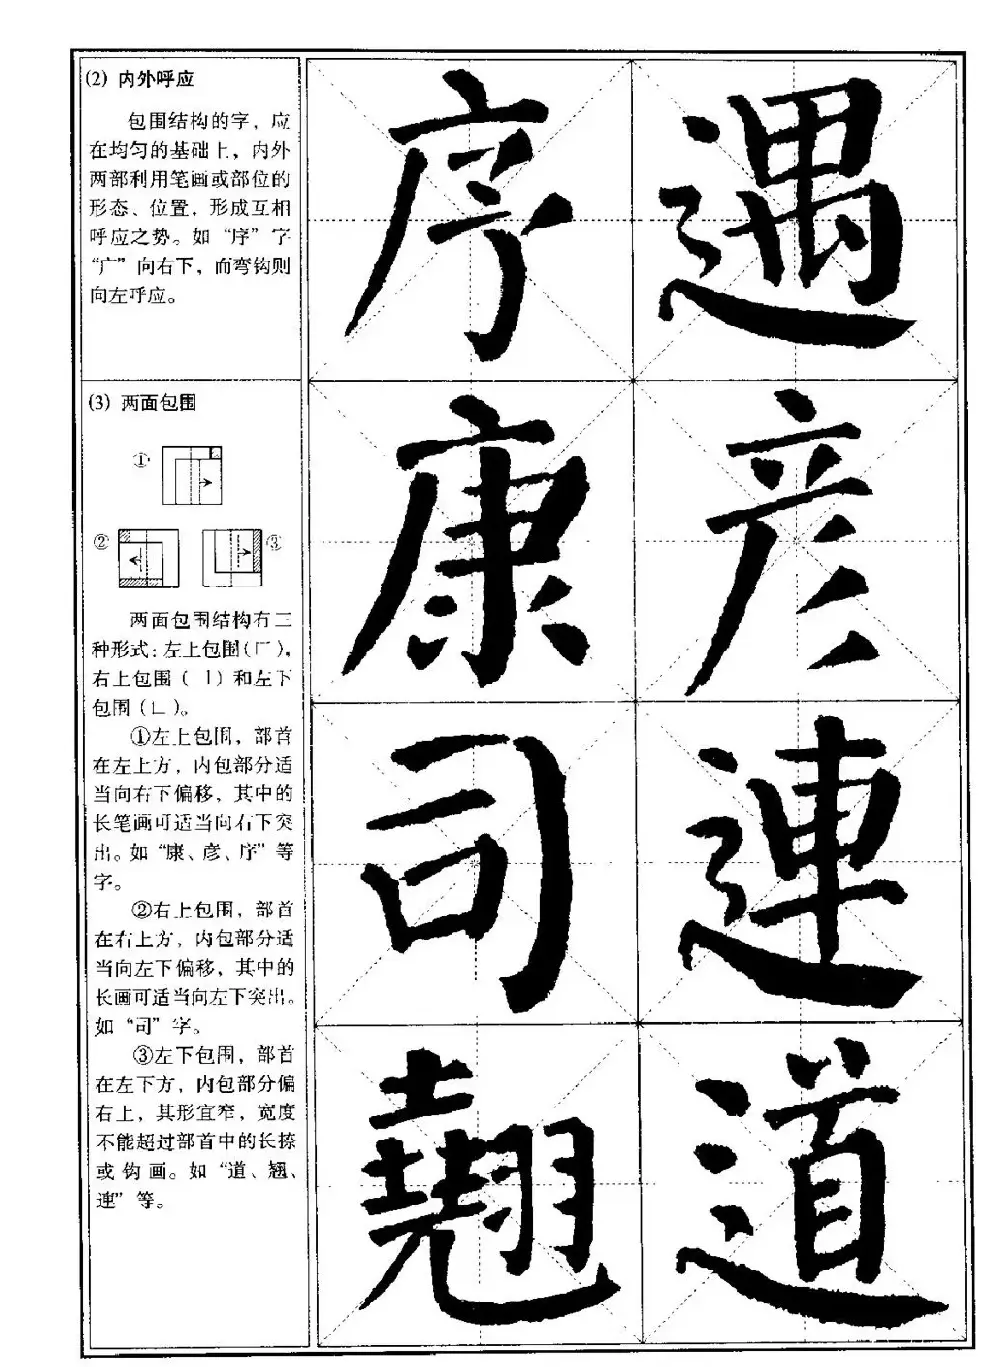 (2) 内外呼应
包围结构的字，应
在均匀的基础上，内外
两部利用笔画或部位的
形态、位置，形成互相
呼应之势。如“序”字
“广”向右下，而弯钩则
向左呼应。
(3) 两面包围
①
②
③
两面包围结构有三
种形式：左上包围(厂)、
右上包围(㇆)和左下
包围(㇄)。
①左上包围，部首
在左上方，内包部分适
当向右下偏移，其中的
长笔画可适当向右下突
出。如“康、彦、序”等
字。
②右上包围，部首
在右上方，内包部分适
当向左下偏移，其中的
长画可适当向左下突出。
如“司”字。
③左下包围，部首
在左下方，内包部分偏
右上，其形宜窄，宽度
不能超过部首中的长捺
或钩画。如“道、翘、
連”等。
序 遇
康 彦
司 連
翹 道